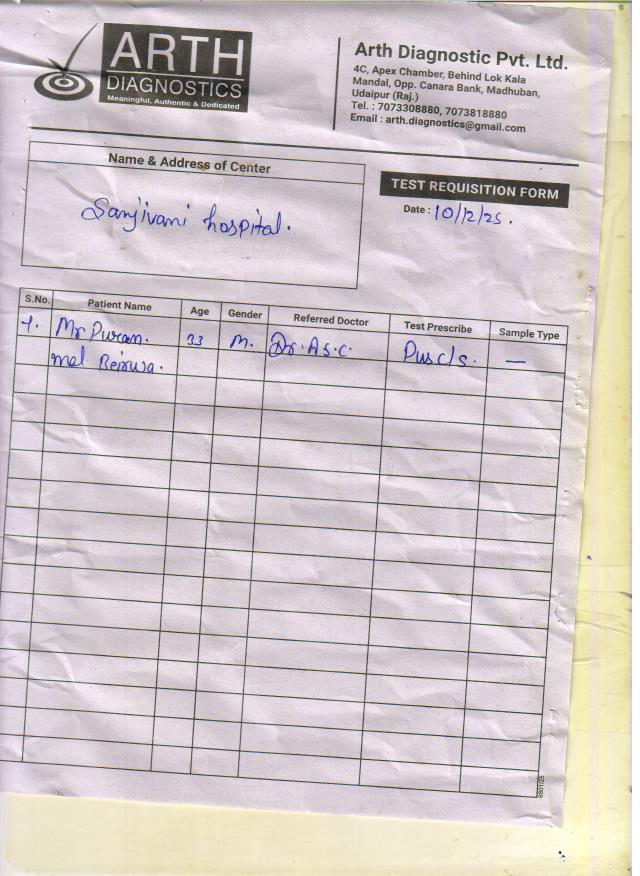 ARTH
DIAGNOSTICS
Meaningful, Authentic & Dedicated
Arth Diagnostic Pvt. Ltd.
4C, Apex Chamber, Behind Lok Kala
Mandal, Opp. Canara Bank, Madhuban,
Udaipur (Raj.)
Tel. : 7073308880, 7073818880
Email : arth.diagnostics@gmail.com
Name & Address of Center
Sanjivani hospital.
TEST REQUISITION FORM
Date : 10/12/25.
S.No. Patient Name Age Gender Referred Doctor Test Prescribe Sample Type
1. Mr Puran. 33 M. Dr. A.S.C. Pus c/s. —
mal